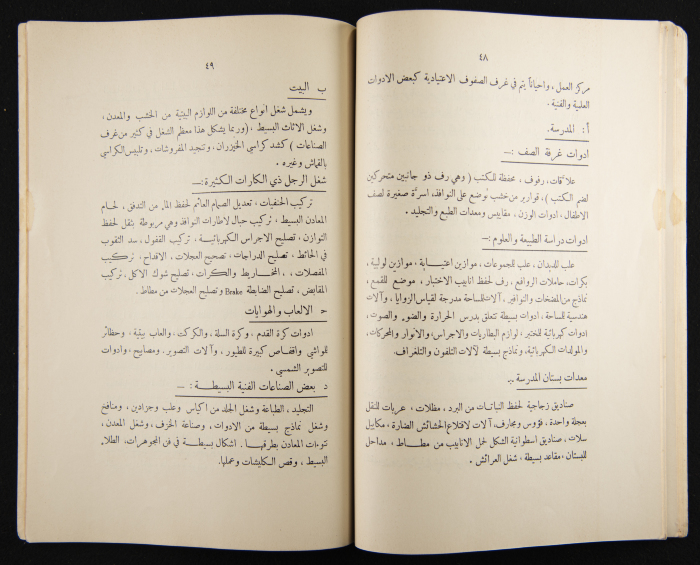 ٤٨
مركز العمل، واحياناً يتم في غرف الصفوف الاعتيادية كبعض الادوات
العلمية والفنية.
أ: المدرسة.
ادوات غرفة الصف :—
علاّقات، رفوف، محفظة للكتب (وهي رف ذو جانبين متحركين
لضم الكتب)، قوارير من خشب تُوضع على النوافذ، اسرّة صغيرة لصف
الاطفال، ادوات الوزن، مقاييس ومعدات الطبع والتجليد.
ادوات دراسة الطبيعة والعلوم :—
علب للديدان، علب للمجموعات، موازين اعتيابية، موازين لولبية،
بكرات، حاملات الروافع، رف لحفظ انابيب الاختبار، موضع للقمع،
نماذج من المضخات والنوافير، آلات للمساحة مدرجة لقياس الزوايا، وآلات
هندسية للمساحة، ادوات بسيطة تتعلق بدرس الحرارة والضوء والصوت،
ادوات كهربائية للمختبر، لوازم البطاريات والاجراس، والانوار والمحركات،
والمولدات الكهربائية، ونماذج بسيطة لآلات التلفون والتلغراف.
معدات بستان المدرسة :—
صناديق زجاجية لحفظ النباتات من البرد، مظلات، عربات للنقل
بعجلة واحدة، فؤوس ومجارف، آلات لاقتلاع الحشائش الضارة، مكابيل
سلات، صناديق اسطوانية الشكل لحمل الانابيب من مطاط، مداخل
للبستان، مقاعد بسيطة، شغل العرائش.
٤٩
ب البيت
ويشمل شغل انواع مختلفة من اللوازم البيتية من الخشب والمعدن،
وشغل الاثاث البسيط، (وربما يشكل هذا معظم الشغل في كثير من غرف
الصناعات) كشد كراسي الخيزران، وتنجيد المفروشات، وتلبيس الكراسي
بالقماش وغيره.
شغل الرجل ذي الكارات الكثيرة :—
تركيب الحنفيات، تعديل الصمام العائم لحفظ الماء من التدفق، لحام
المعادن البسيط، تركيب حبال لاطارات النوافذ وهي مربوطة بثقل لحفظ
التوازن، تصليح الاجراس الكهربائية، تركيب القفول، سد الثقوب
في الحائط، تصليح الدراجات، تصحيح العجلات، الاقداح، تركيب
المفصلات، المخاريط والكرات، تصليح شوك الاكل، تركيب
المقابض، تصليح الضابطة Brake وتصليح العجلات من مطاط.
ج الالعاب والهوايات
ادوات كرة القدم، وكرة السلة، والكركت، والعاب بيتية، وحظائر
للمواشي واقفاص كبيرة للطيور، وآلات التصوير، ومصابيح، وادوات
للتصوير الشمسي.
د بعض الصناعات الفنية البسيطة :—
التجليد، الطباعة وشغل الجلد من اكياس وعلب وجزادين، ومنافخ
وشغل نماذج بسيطة من الادوات، وصناعة الخزف، وشغل المعدن،
نتوءات المعادن بطرقها. اشكال بسيطة في فن المجوهرات، الطلاء
البسيط، وقص الكليشات وعملها.